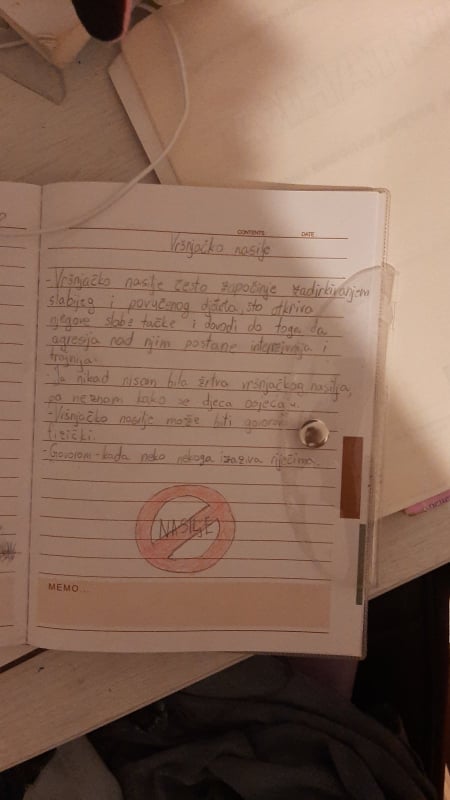 CONTENTS DATE
Vršnjačko nasilje
-Vršnjačko nasilje često započinje zadirkivanjem
slabijeg i povučenog djeteta, što otkriva
njegove slabe tačke i dovodi do toga da
agresija nad njim postane intenzivnija i
trajnija.
-Ja nikad nisam bila žrtva vršnjačkog nasilja,
pa neznam kako se djeca osjećaju.
-Vršnjačko nasilje može biti govorom
fizički.
-Govorom-kada neko nekoga izaziva riječima.
NASILJE
MEMO...